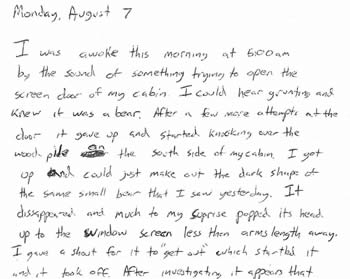 Monday, August 7
I was awoke this morning at 6:00am
by the sound of something trying to open the
screen door of my cabin. I could hear grunting and
knew it was a bear. After a few more attempts at the
door it gave up and started knocking over the
wood pile on the south side of my cabin. I got
up and could just make out the dark shape of
the same small bear that I saw yesterday. It
dissappeared and much to my suprise popped its head
up to the window screen less then arms length away.
I gave a shout for it to "get out" which startled it
and it took off. After investigating, it appears that